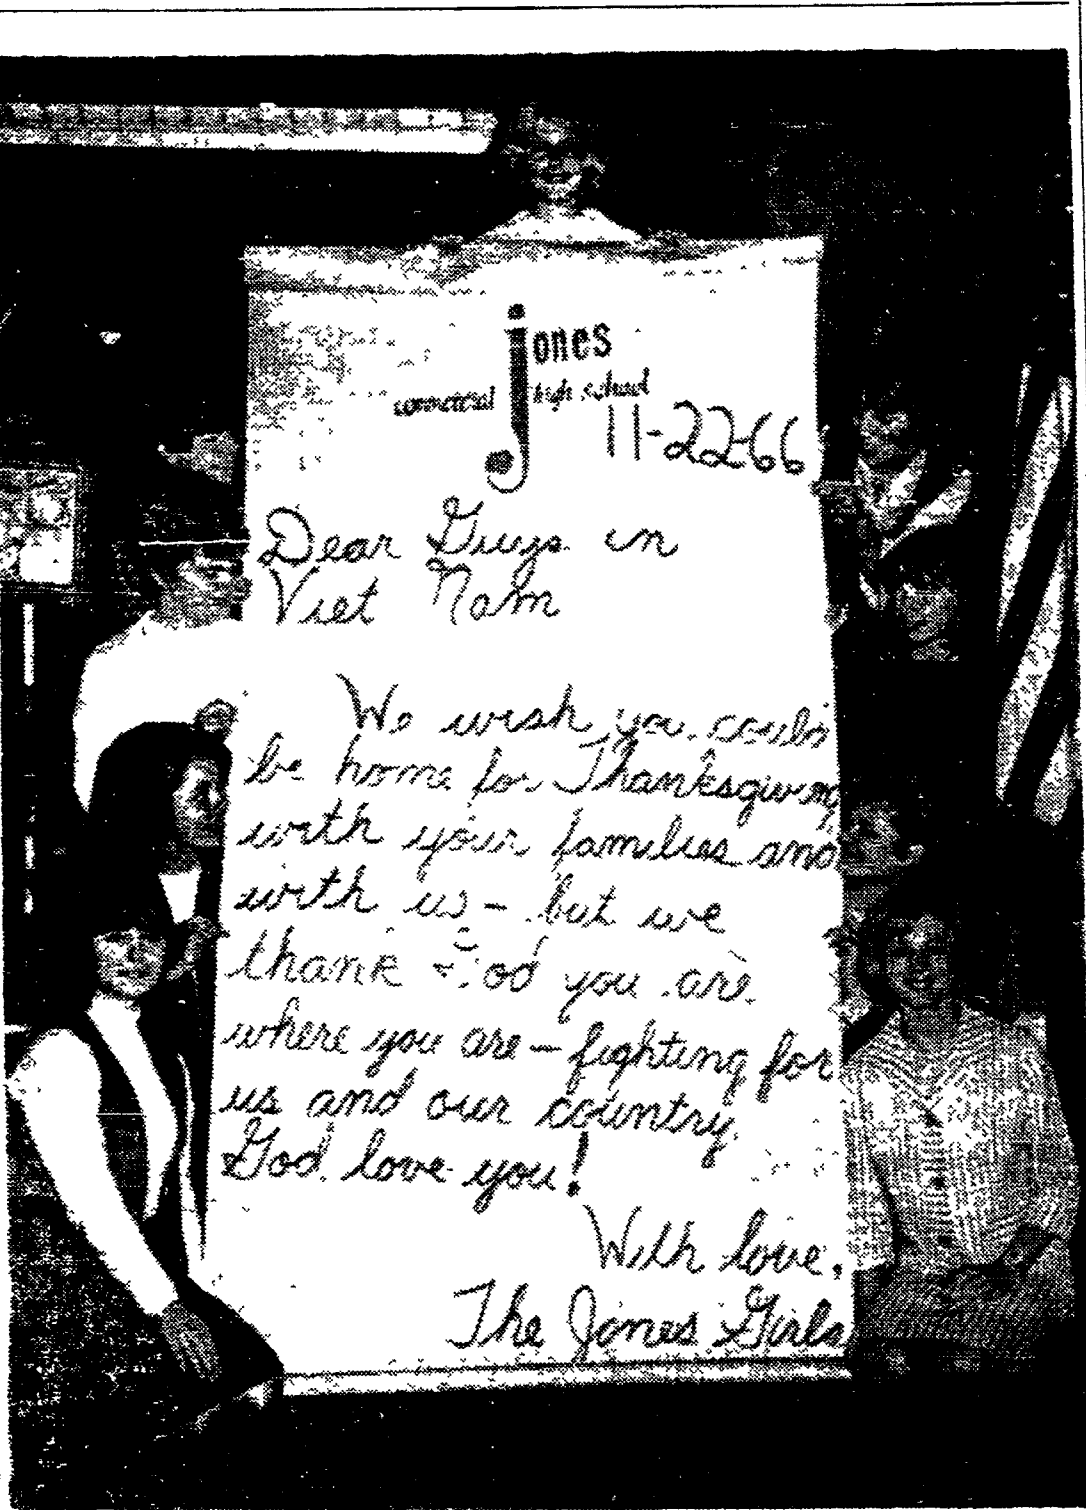 jones
commercial high school
11-22-66
Dear Guys in
Viet Nam
We wish you could
be home for Thanksgiving
with your families and
with us - but we
thank God you are
where you are - fighting for
us and our country.
God love you!
With love,
The Jones Girls